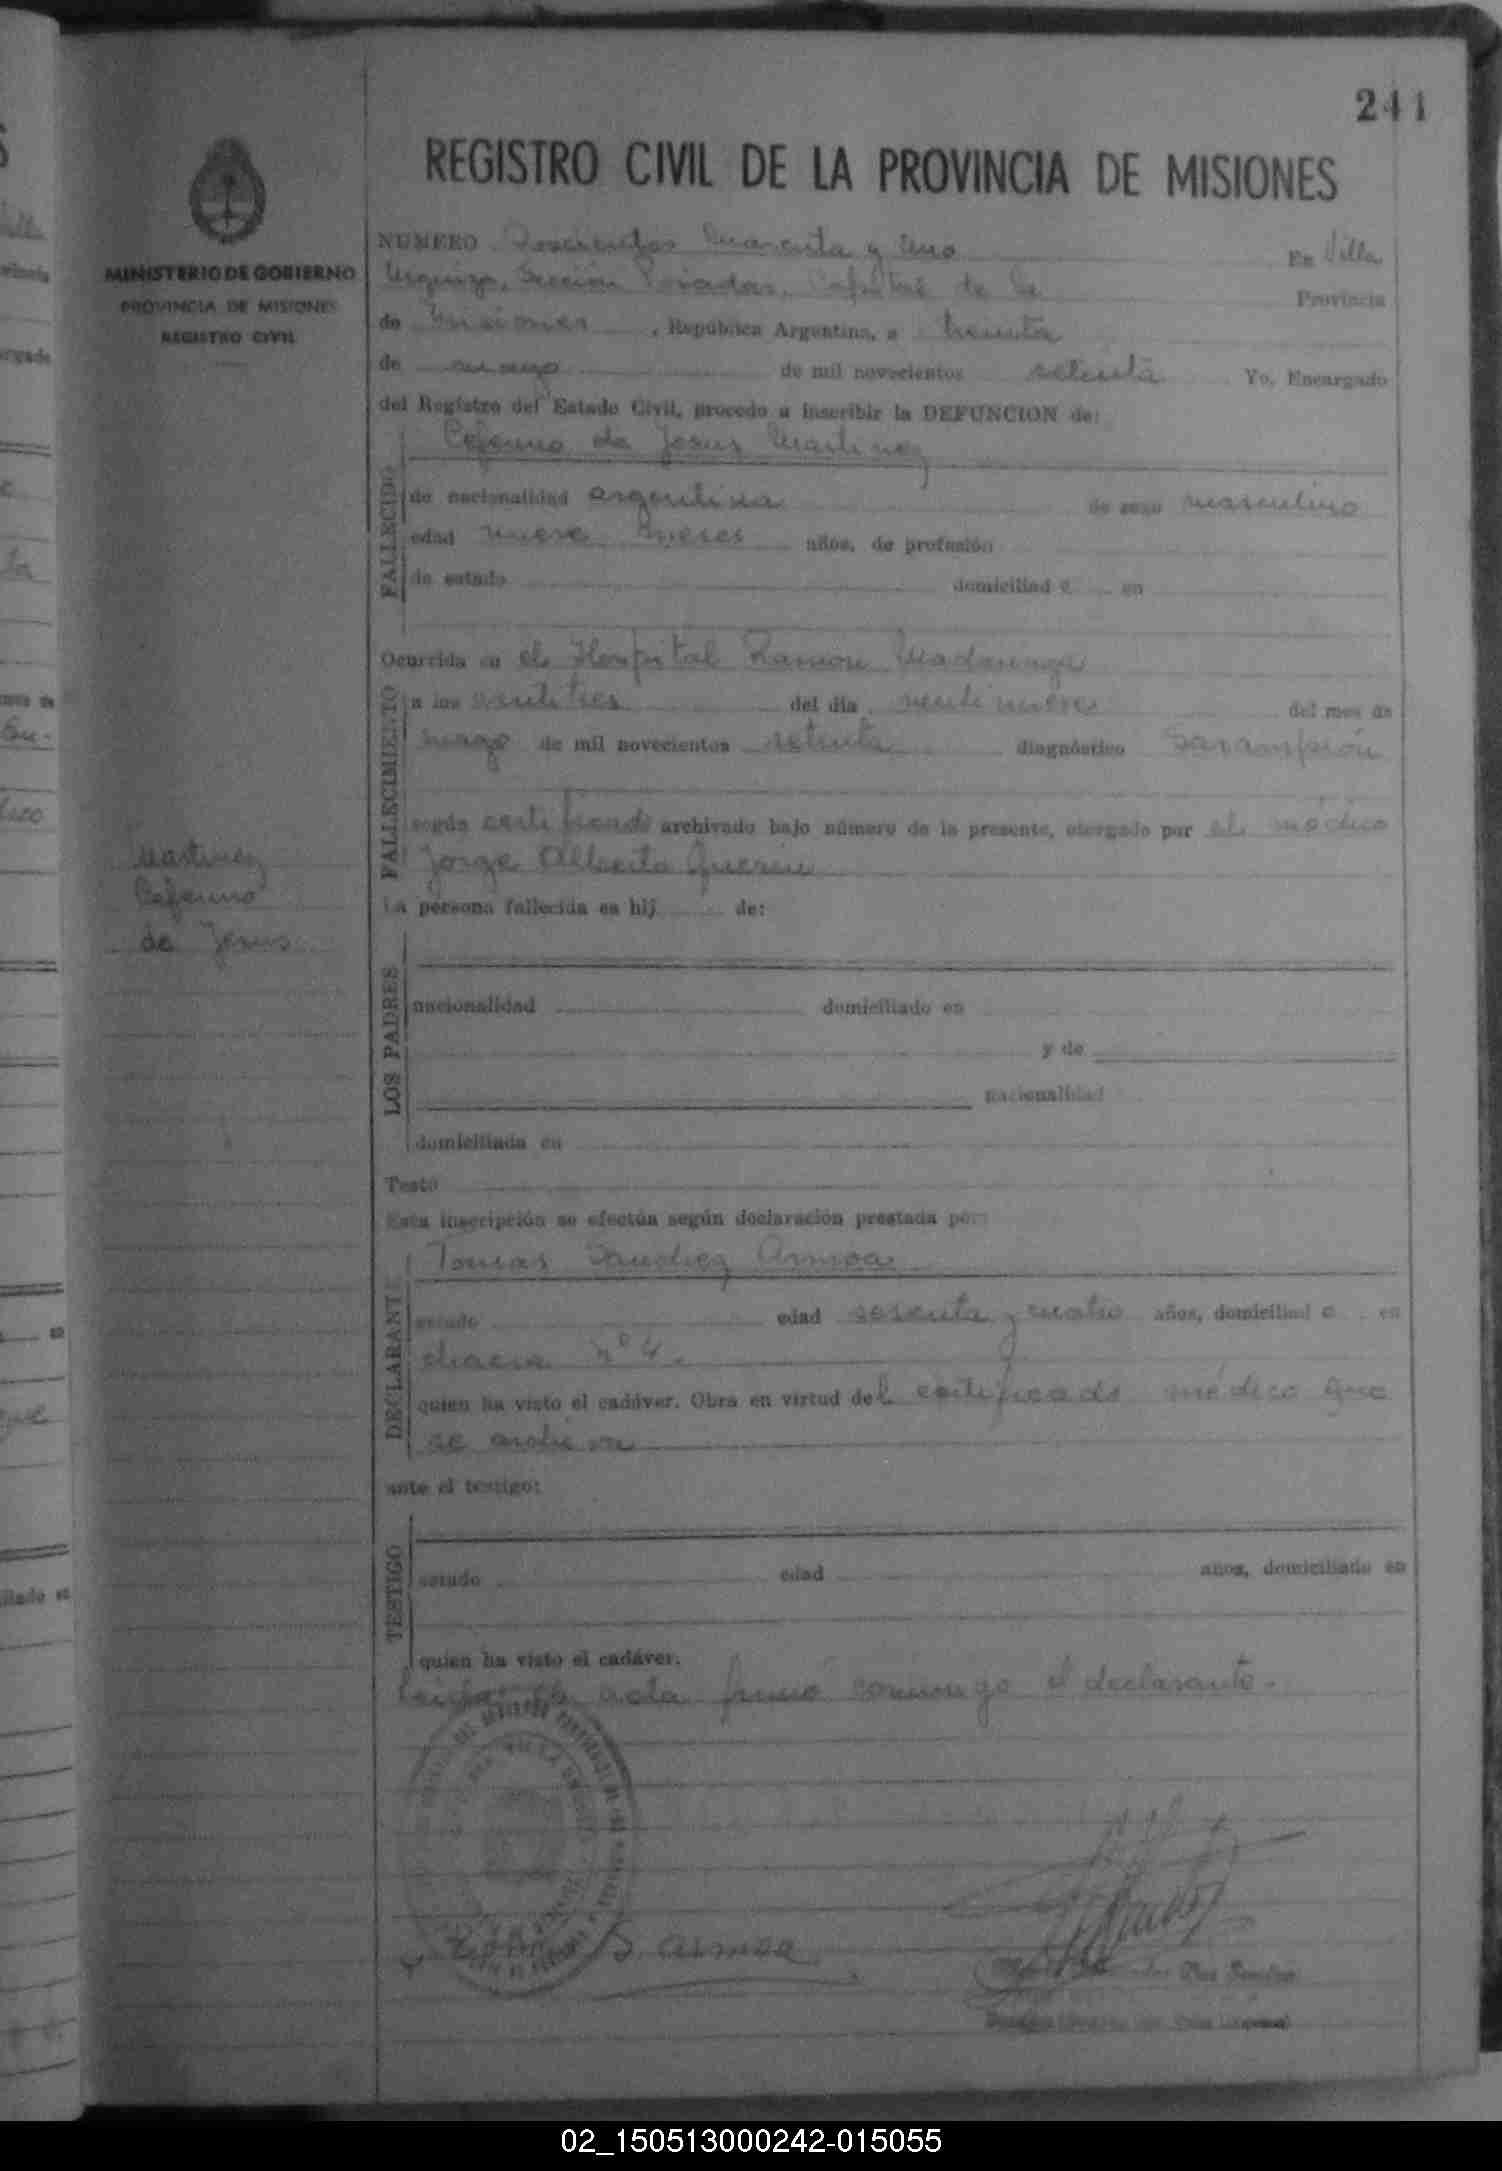 241
REGISTRO CIVIL DE LA PROVINCIA DE MISIONES
MINISTERIO DE GOBIERNO
PROVINCIA DE MISIONES
REGISTRO CIVIL
NUMERO Doscientos Cuarenta y Uno En Villa
Urquiza, Sección Posadas, Capital de la Provincia
de Misiones, República Argentina, a treinta
de mayo de mil novecientos setenta Yo, Encargado
del Registro del Estado Civil, procedo a inscribir la DEFUNCION de:
Ceferino de Jesus Martinez
FALLECIDO
de nacionalidad argentina de sexo masculino
edad nueve meses años, de profesión
de estado domiciliad o en
Ocurrida en el Hospital Ramon Madariaga
FALLECIMIENTO
a las veintitres del día veintinueve del mes de
mayo de mil novecientos setenta diagnóstico Sarampión
según certificado archivado bajo número de la presente, otorgado por el médico
Jorge Alberto
Martinez
Ceferino
de Jesus
La persona fallecida es hij de:
LOS PADRES
nacionalidad domiciliado en
y de
nacionalidad
domiciliada en
Testó
Esta inscripción se efectúa según declaración prestada por:
Tomas Sanchez Armoa
DECLARANTE
estado edad sesenta y cuatro años, domiciliad o en
chacra nº 4.
quien ha visto el cadáver. Obra en virtud del certificado médico que
se archiva
ante el testigo:
TESTIGO
estado edad años, domiciliado en
quien ha visto el cadáver.
Leida el acta firmó conmigo el declarante.
S. armoa
02_150513000242-015055